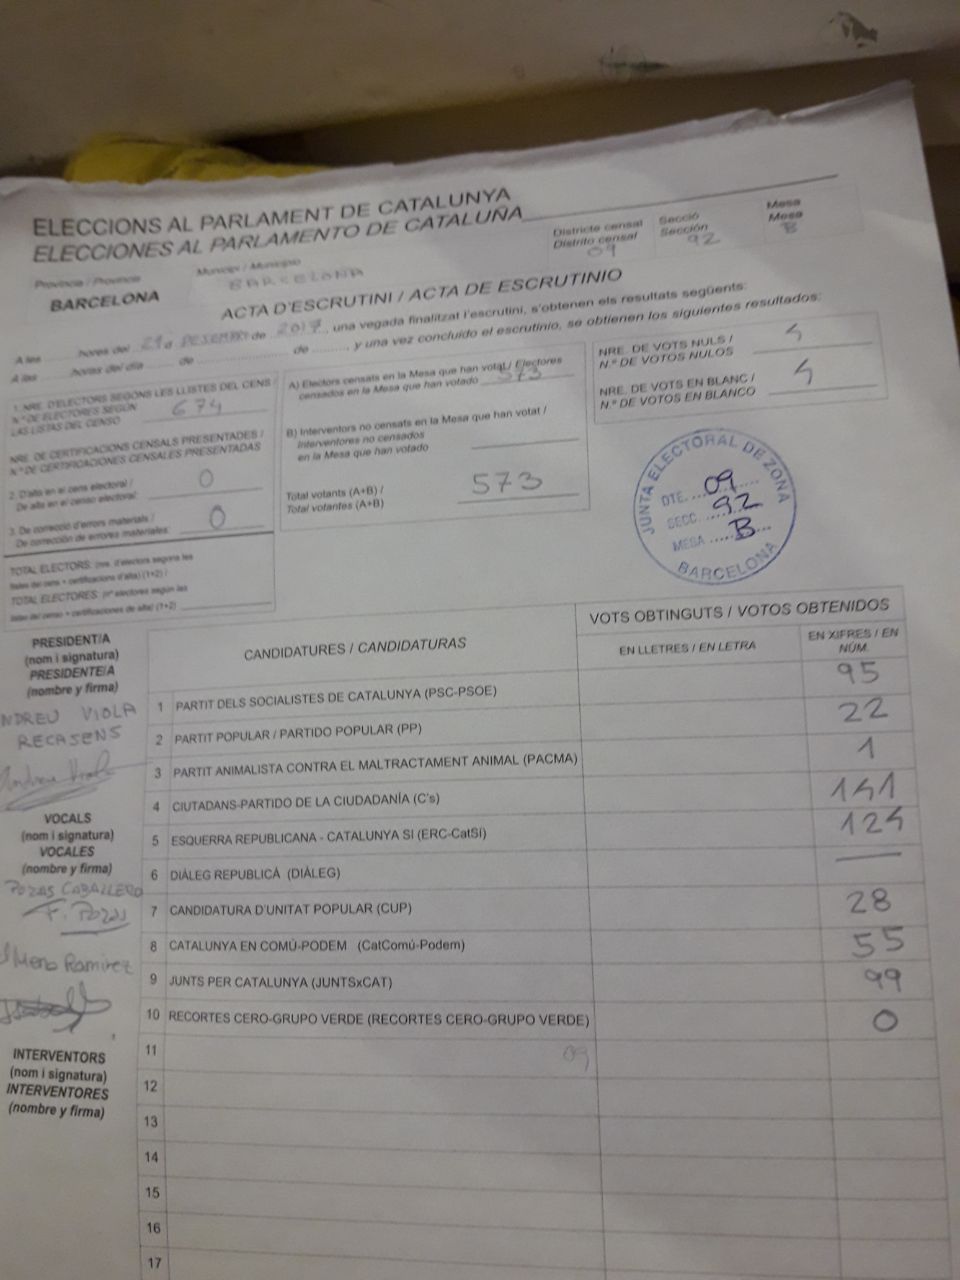 ELECCIONS AL PARLAMENT DE CATALUNYA
ELECCIONES AL PARLAMENTO DE CATALUÑA
Districte censal
Distrito censal
09
Secció
Sección
92
Mesa
Mesa
B
Província / Provincia
BARCELONA
Municipi / Municipio
BARCELONA
ACTA D'ESCRUTINI / ACTA DE ESCRUTINIO
A les ........ hores del 21 de DESEMBRE de 2017, una vegada finalitzat l'escrutini, s'obtenen els resultats següents:
A las ........ horas del día ........ de ........ de ........, y una vez concluido el escrutinio, se obtienen los siguientes resultados:
1. NRE. D'ELECTORS SEGONS LES LLISTES DEL CENS /
N.º DE ELECTORES SEGÚN
LAS LISTAS DEL CENSO
674
NRE. DE CERTIFICACIONS CENSALS PRESENTADES /
N.º DE CERTIFICACIONES CENSALES PRESENTADAS
2. D'alta en el cens electoral /
De alta en el censo electoral:
0
3. De correcció d'errors materials /
De corrección de errores materiales:
0
TOTAL ELECTORS: (nre. d'electors segons les
llistes del cens + certificacions d'alta) (1+2) /
TOTAL ELECTORES: (nº electores según las
listas del censo + certificaciones de alta) (1+2)
A) Electors censats en la Mesa que han votat / Electores
censados en la Mesa que han votado
573
B) Interventors no censats en la Mesa que han votat /
Interventores no censados
en la Mesa que han votado
Total votants (A+B) /
Total votantes (A+B)
573
NRE. DE VOTS NULS /
N.º DE VOTOS NULOS
4
NRE. DE VOTS EN BLANC /
N.º DE VOTOS EN BLANCO
4
JUNTA ELECTORAL DE ZONA
DTE. 09
SECC. 92
MESA B
BARCELONA
PRESIDENT/A
(nom i signatura)
PRESIDENTE/A
(nombre y firma)
NDREU VIOLA
RECASENS
VOCALS
(nom i signatura)
VOCALES
(nombre y firma)
POZAS CABALLERO
F. Pozas
Mena Ramirez
INTERVENTORS
(nom i signatura)
INTERVENTORES
(nombre y firma)
CANDIDATURES / CANDIDATURAS
VOTS OBTINGUTS / VOTOS OBTENIDOS
EN LLETRES / EN LETRA
EN XIFRES / EN
NÚM.
1 PARTIT DELS SOCIALISTES DE CATALUNYA (PSC-PSOE) 95
2 PARTIT POPULAR / PARTIDO POPULAR (PP) 22
3 PARTIT ANIMALISTA CONTRA EL MALTRACTAMENT ANIMAL (PACMA) 1
4 CIUTADANS-PARTIDO DE LA CIUDADANÍA (C's) 141
5 ESQUERRA REPUBLICANA - CATALUNYA SÍ (ERC-CatSí) 124
6 DIÀLEG REPUBLICÀ (DIÀLEG) —
7 CANDIDATURA D'UNITAT POPULAR (CUP) 28
8 CATALUNYA EN COMÚ-PODEM (CatComú-Podem) 55
9 JUNTS PER CATALUNYA (JUNTSxCAT) 99
10 RECORTES CERO-GRUPO VERDE (RECORTES CERO-GRUPO VERDE) 0
11 09
12
13
14
15
16
17